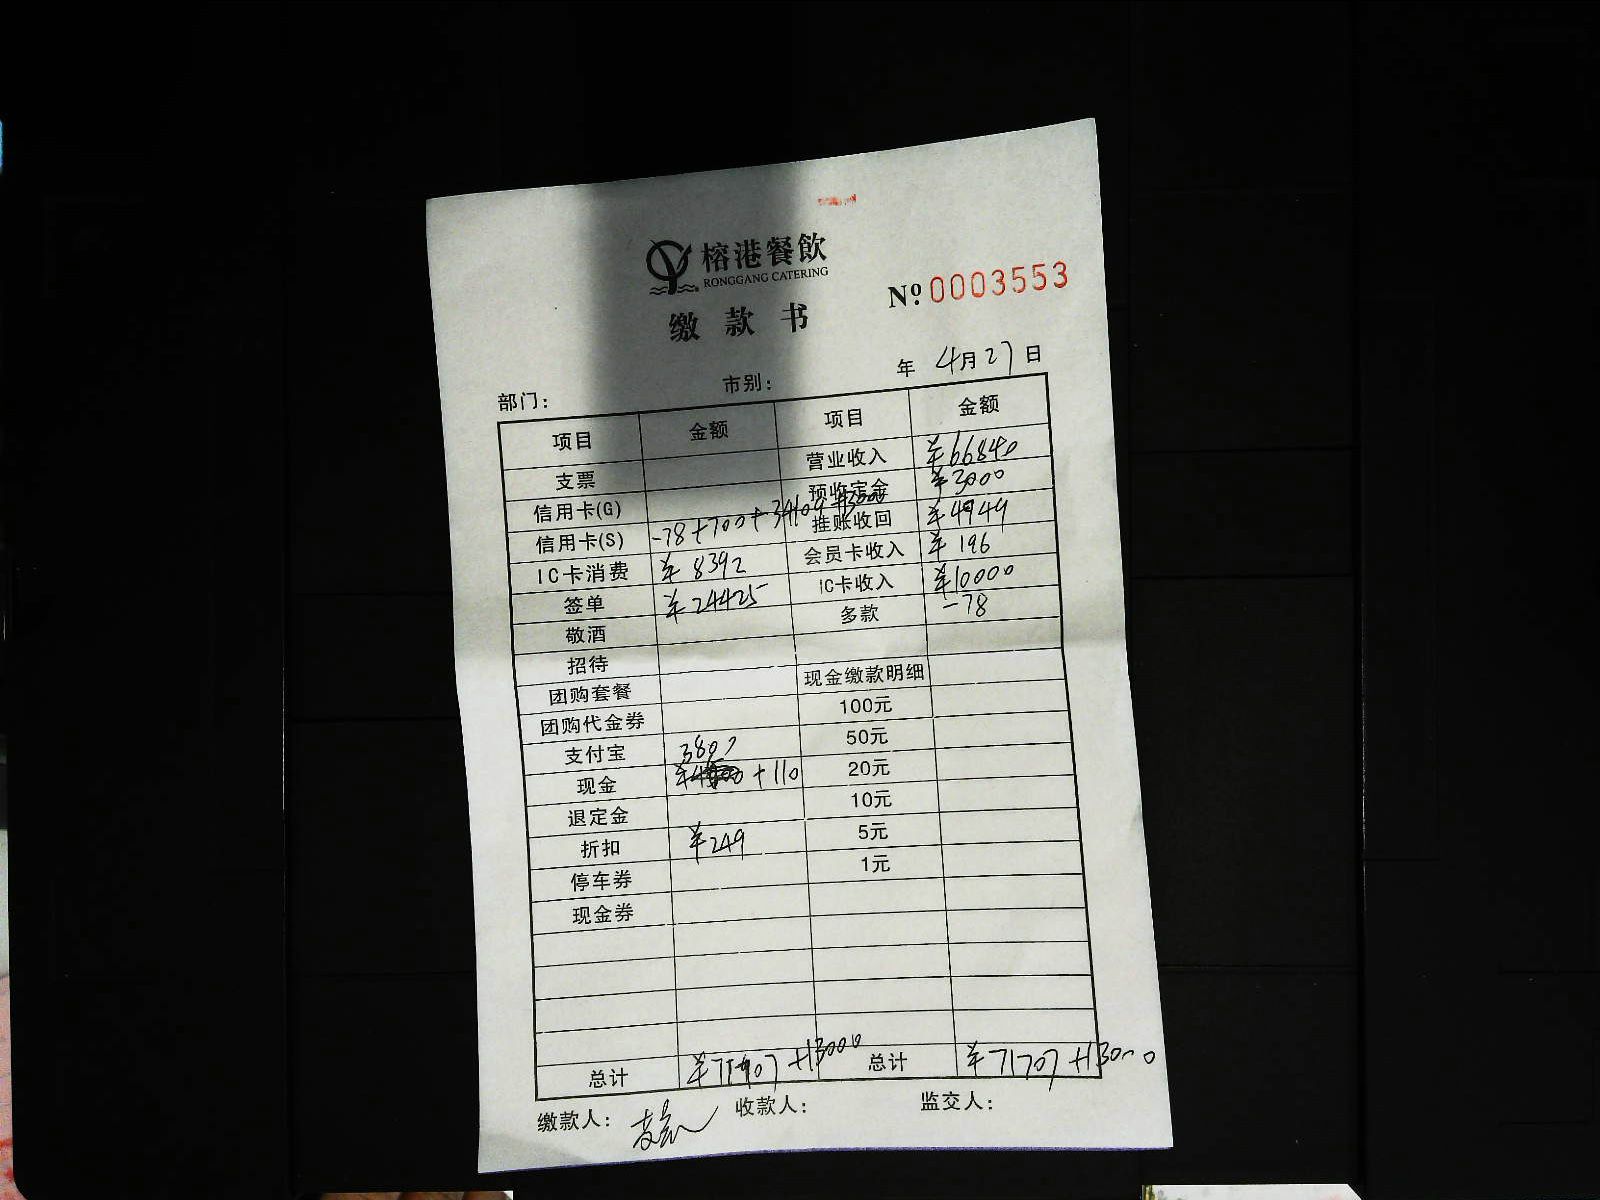 榕港餐飲
RONGGANG CATERING
缴款书
Nº.0003553
年 4月27日
部门： 市别：
项目 金额 项目 金额
支票 营业收入 ¥66840
信用卡(G) 预收定金 ¥3000
信用卡(S) -78+700+34104+13000 挂账收回 ¥4949
IC卡消费 ¥8392 会员卡收入 ¥196
签单 ¥24425 IC卡收入 ¥10000
敬酒 多款 -78
招待
团购套餐 现金缴款明细
团购代金券 100元
支付宝 3807 50元
现金 +110 20元
退定金 10元
折扣 ¥249 5元
停车券 1元
现金券
总计 +13000 总计 ¥71707+13000
缴款人： 收款人： 监交人：